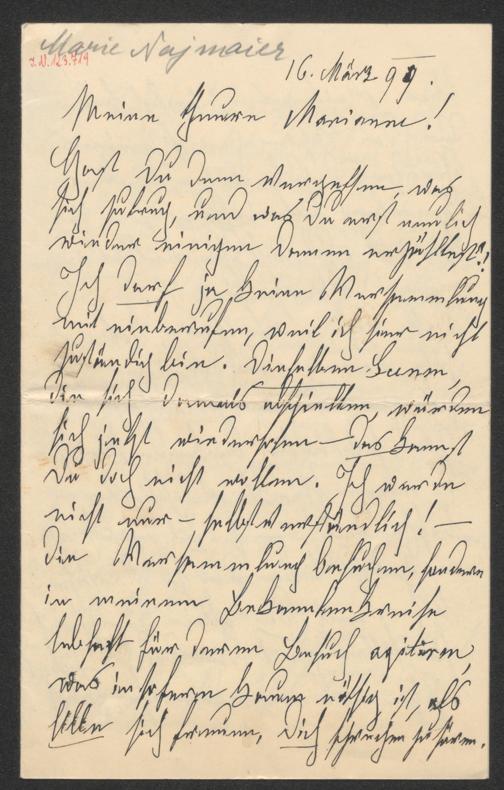 Marie Najmaier
I.N. 123.719
16. März 99.
Meine theure Marianne!
Hast Du denn vergessen, was
sich zutrug, und was Du erst neulich
wieder einigen Damen erzähltest?!
Ich darf ja keine Versammlung
mit einberufen, weil ich hier nicht
zuständig bin. Dieselben
die sich damals abspielten, würden
sich jetzt wiederholen – das kannst
Du doch nicht wollen. Ich werde
nicht nur – selbstverständlich! –
die Versammlung besuchen, sondern
in meinem Bekanntenkreise
lebhaft für deren Besuch agitiren,
was insofern kaum nöthig ist, als
alle sich freuen, Dich sprechen zu hören.